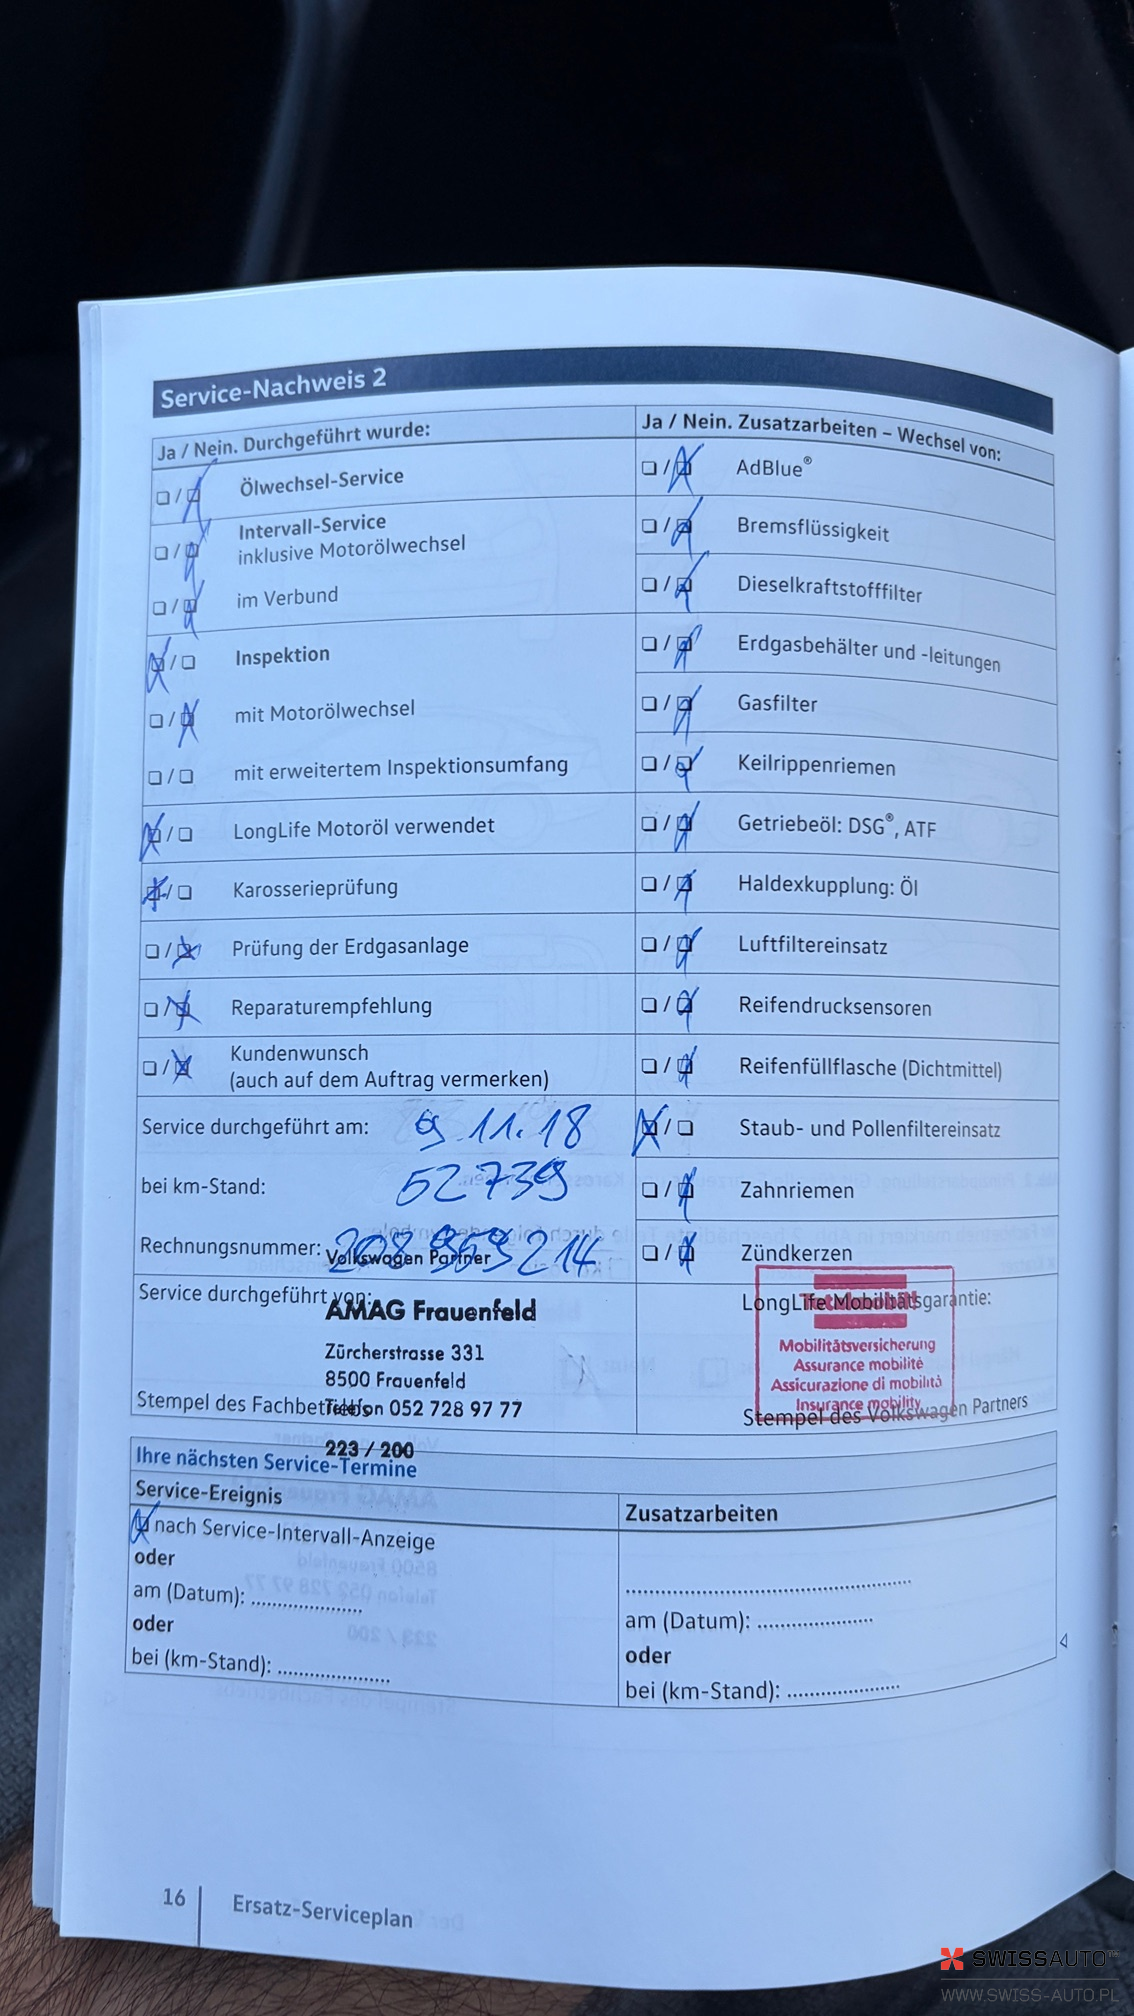 Service-Nachweis 2
Ja / Nein. Durchgeführt wurde:
Ölwechsel-Service
Intervall-Service
inklusive Motorölwechsel
im Verbund
Inspektion
mit Motorölwechsel
mit erweitertem Inspektionsumfang
LongLife Motoröl verwendet
Karosserieprüfung
Prüfung der Erdgasanlage
Reparaturempfehlung
Kundenwunsch
(auch auf dem Auftrag vermerken)
Service durchgeführt am: 9 11.18
bei km-Stand: 52739
Rechnungsnummer: 208 969 214
Volkswagen Partner
Service durchgeführt von:
AMAG Frauenfeld
Zürcherstrasse 331
8500 Frauenfeld
Stempel des Fachbetriebs
Telefon 052 728 97 77
223 / 200
Ja / Nein. Zusatzarbeiten – Wechsel von:
AdBlue®
Bremsflüssigkeit
Dieselkraftstofffilter
Erdgasbehälter und -leitungen
Gasfilter
Keilrippenriemen
Getriebeöl: DSG®, ATF
Haldexkupplung: Öl
Luftfiltereinsatz
Reifendrucksensoren
Reifenfüllflasche (Dichtmittel)
Staub- und Pollenfiltereinsatz
Zahnriemen
Zündkerzen
LongLife Mobilitätsgarantie:
Mobilitätsversicherung
Assurance mobilité
Assicurazione di mobilità
Insurance mobility
Stempel des Volkswagen Partners
Ihre nächsten Service-Termine
Service-Ereignis
nach Service-Intervall-Anzeige
oder
am (Datum): ....................
oder
bei (km-Stand): ....................
Zusatzarbeiten
..................................................
am (Datum): ....................
oder
bei (km-Stand): ....................
16
Ersatz-Serviceplan
SWISSAUTO™
WWW.SWISS-AUTO.PL